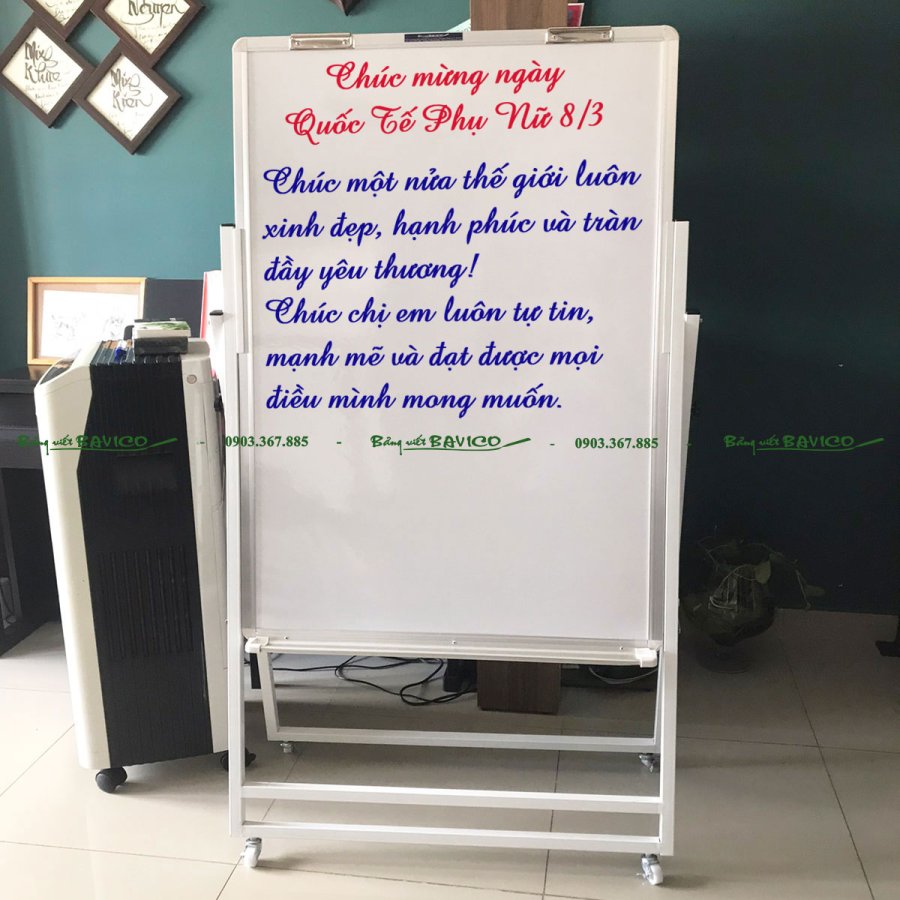 Nguyen
Minh
Khue
Minh
Kiên
Chúc mừng ngày
Quốc Tế Phụ Nữ 8/3
Chúc một nửa thế giới luôn
xinh đẹp, hạnh phúc và tràn
đầy yêu thương!
Chúc chị em luôn tự tin,
mạnh mẽ và đạt được mọi
điều mình mong muốn.
Bảng viết BAVICO - 0903.367.885 - Bảng viết BAVICO - 0903.367.885 - Bảng viết BAVICO